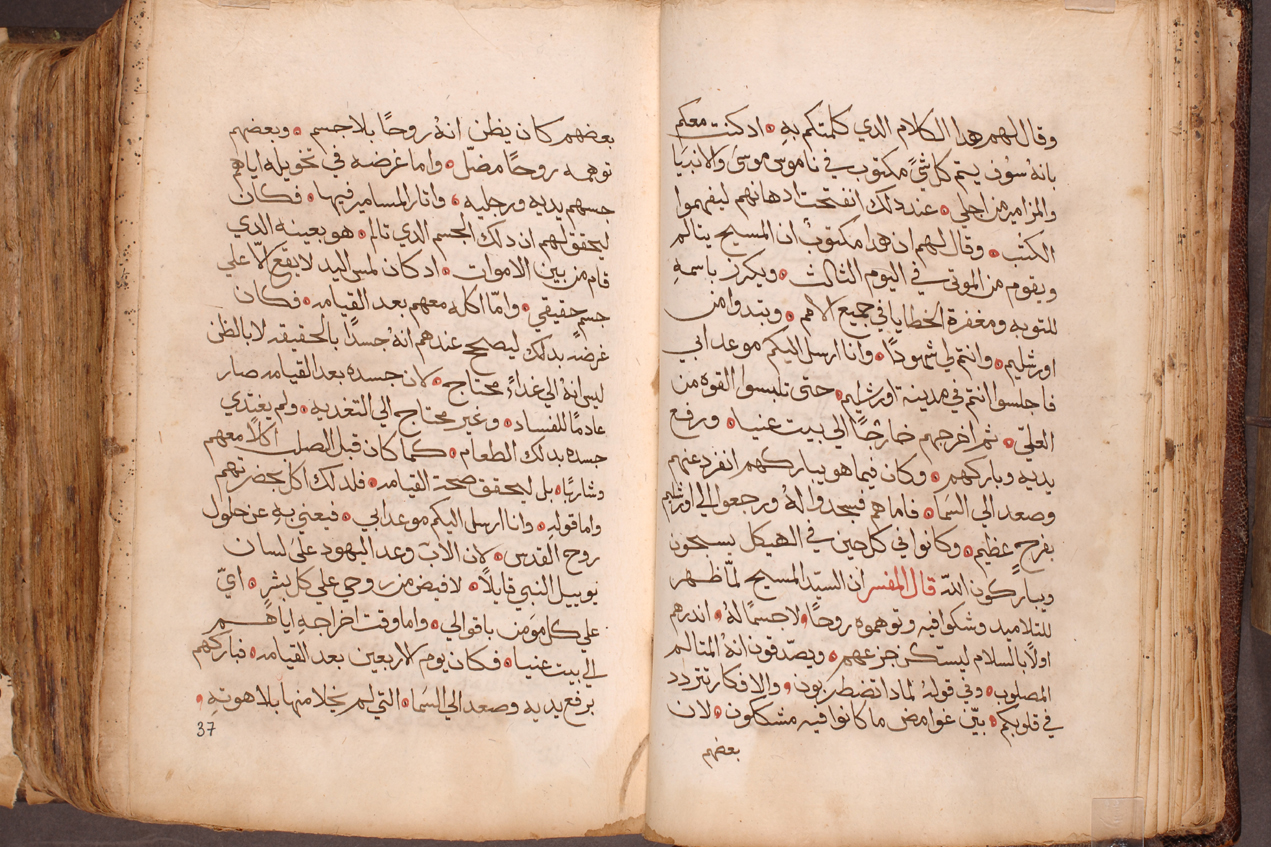 وقال لهم هدا الكلام الدي كلمتكم به ٥ ادكنت معكم
بانهُ سوف يتم كل شيً مكتوب في ناموس موسى والانبيا
والمزامير من اجلي ٥ عند دلك انفتحت ادهانهم ليفهموا
الكتب ٥ وقال لهم ان هدا مكتوبٌ ان المسيح يتالم
ويقوم من الموتى في اليوم الثالث ٥ ويكرز باسمهِ
للتوبه ومغفرة الخطايا في جميع الامم ٥ وتبتدوا من
اورشليم ٥ وانتم لي شهودًا ٥ وانا ارسل اليكم موعد ابي
فاجلسوا انتم في مدينة اورشليم ٥ حتى تلبسوا القوه من
العليّ ٥ ثم اخرجهم خارجًا الى بيت عنيا ٥ ورفع
يديه وباركهم ٥ وكان فيما هو يباركهم انفرد عنهم
وصعد الى السَما ٥ فاما هم فسجدوا لهُ ورجعوا الى اورشليم
بفرحٍ عظيم ٥ وكانوا في كل حين في الهيكل يسبحون
ويباركون اللّه قال المفسر ان السيّد المسيح لمّا ظهر
للتلاميد وشكوا فيه وتوهموه روحًا ٥ لا جسمًا لهُ ٥ اندرهم
اولاً بالسلام ليسكن جزعهم ٥ ويصدّقون انهُ المتالم
المصلوب ٥ وفي قولهُ لمادا تضطربون ٥ والافكار تتردد
في قلوبكم ٥ بيّن غوامض ما كانوا فيه مشككون ٥ لان
بعضهم
بعضهم كان يظن انهُ روحًا بلا جسم ٥ وبعضهم
توهمه روحًا مضلّ ٥ واما غرضه في تخويله اياهم
جسهم يديه ورجليه ٥ واثار المسامير فيها ٥ فكان
ليحقق لهم ان دلك الجسم الدي تالم ٥ هو بعينه الدي
قام من بين الاموات ٥ ادكان لمس اليد لا يقع الاّ على
جسمٍ حقيقي ٥ وامّا اكله معهم بعد القيامه ٥ فكان
غرضه بدلك ليصحح عندهم انهُ جسدًا بالحقيقه لا بالظن
ليس انهُ الى غداءً محتاج ٥ لان جسده بعد القيامه صار
عادمًا للفساد ٥ وغير محتاج الى التغديه ٥ ولم يغتدي
جسده بدلك الطعام ٥ كما كان قبل الصلب اكلاً معهم
وشاربًا ٥ بل ليحقق صحة القيامه ٥ فلدلك اكل بحضرتهم
واما قولهِ ٥ وانا ارسل اليكم موعد ابي ٥ فيعني بهِ عن حلول
روح القدس ٥ لان الابّ وعد اليهود على لسان
يوييل النبي قايلاً ٥ لافيض من روحي علي كل بشر ٥ ايّ
علي كل مومن باقوالي ٥ واما وقت اخراجهِ اياهم
الي بيت عنيا ٥ فكان يوم الاربعين بعد القيامه ٥ فباركهم
برفع يديه وصعد الى السَما ٥ التي لم يخلا منها بلاهوته ٥
37